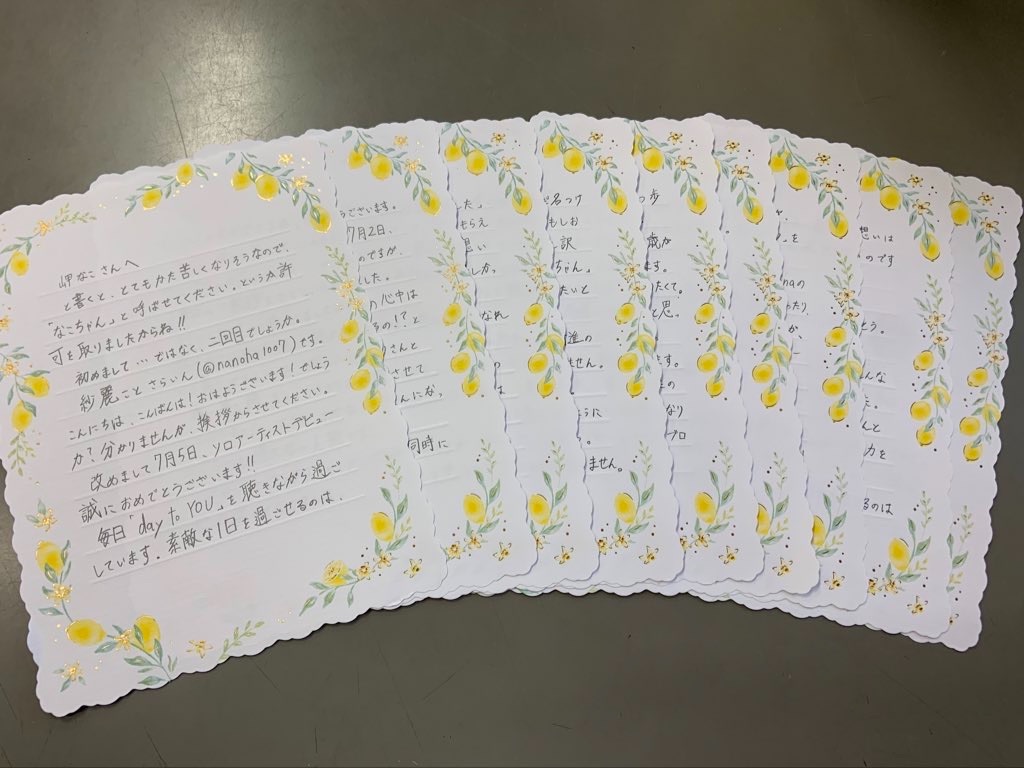 岬なこさんへ
と書くと、とてもかた苦しくなりそうなので
「なこちゃん」と呼ばせてください。というか許
可を取りましたからね!!
初めまして…ではなく、二回目でしょうか。
紗麗ことさらいん(@nanoha1007)です。
こんにちは、こんばんは!おはようございます!でしょう
か?分かりませんが、挨拶からさせてください。
改めまして7月5日、ソロアーティストデビュー
誠におめでとうございます!!
毎日「day to YOU」を聴きながら過ご
しています。素敵な1日を過させるのは、
うございます。
7月2日、
のですが、
した。
り心中は
るの!?と
さんと
させて
んにな、
同時に
た。
もらえ
思い
しか。
なれ
で名つけ
もしお
訳
ちゃん」
たいと
進の
せん。
うに
。
ません。
つ歩
歳が
ます。
たくて。
と思。
ます。
の
なり
プロ
を
naの
たり
が、
想いは
のです
とう。
んな
た。
んと
力を
るのは